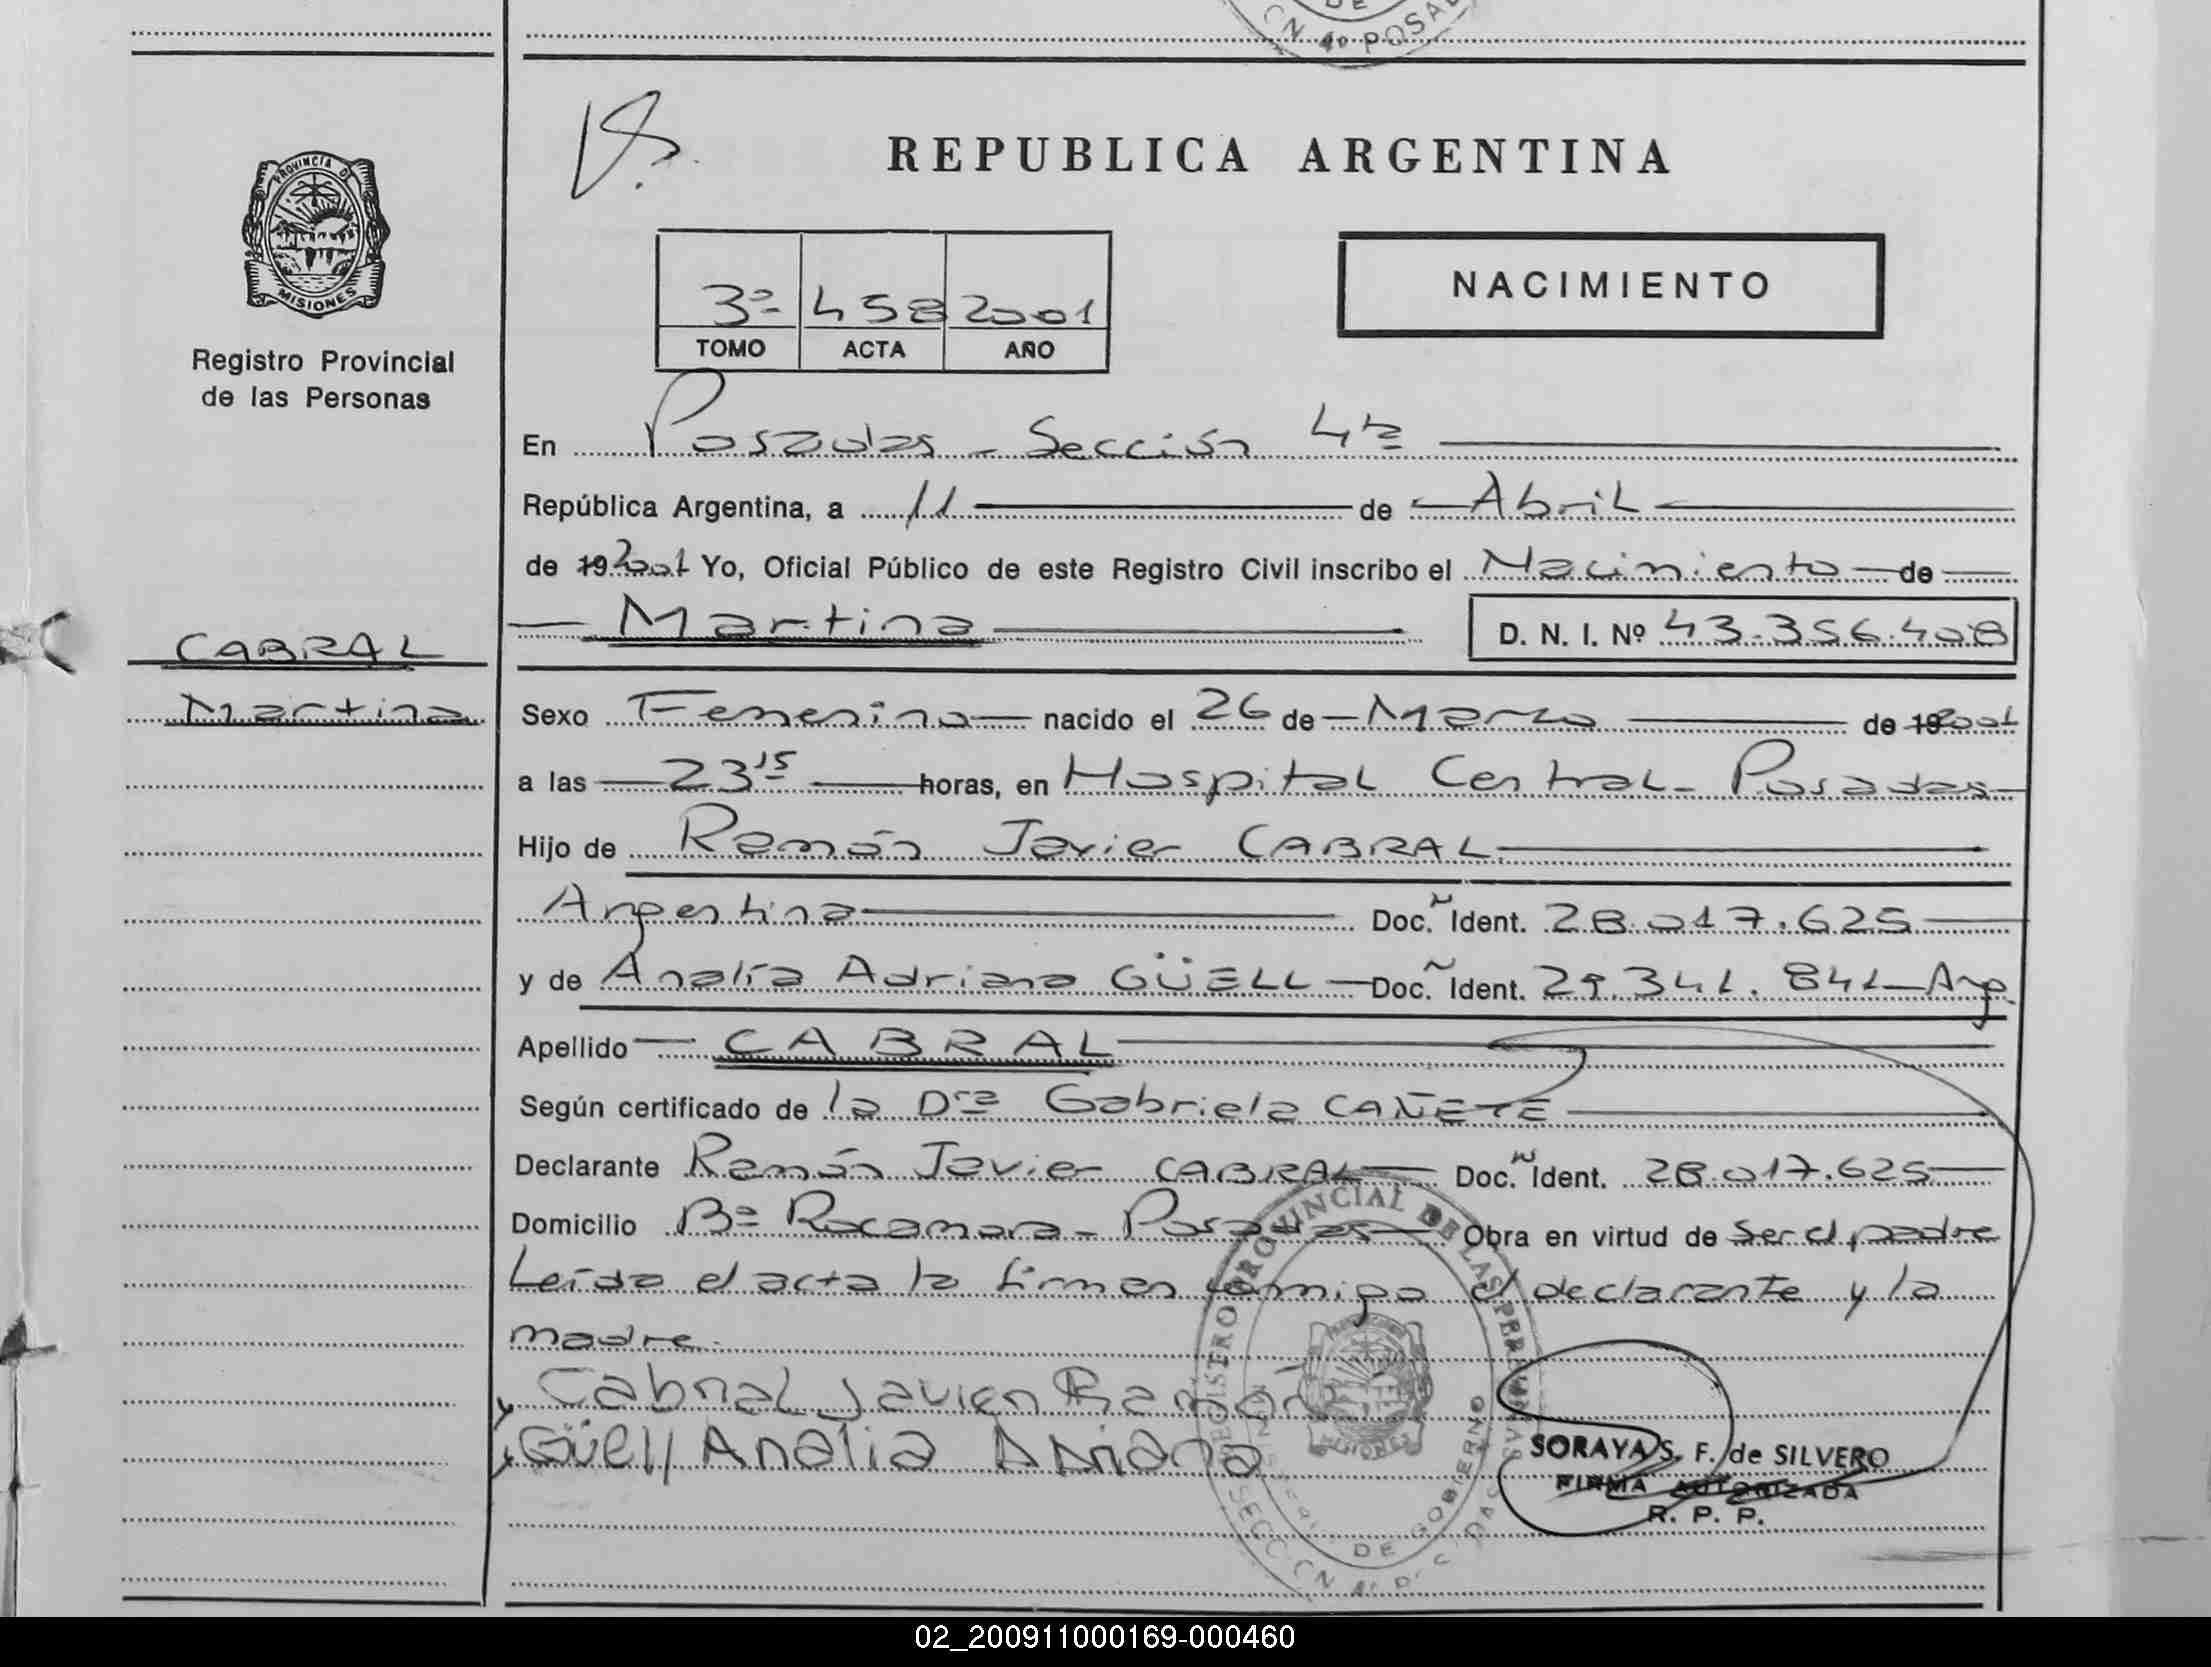 CN 4º POSAD
DE
REPUBLICA ARGENTINA
PROVINCIA D
MISIONES
Registro Provincial
de las Personas
3º 458 2001
TOMO ACTA AÑO
NACIMIENTO
En Posadas - Sección 4ta
República Argentina, a 11 de Abril
de 19 2001 Yo, Oficial Público de este Registro Civil inscribo el Nacimiento de
Martina D. N. I. Nº 43.356.408
CABRAL
Martina
Sexo Femenino nacido el 26 de Marzo de 19 2001
a las 23 15 horas, en Hospital Central - Posadas
Hijo de Ramón Javier CABRAL
Argentina Doc. Ident. 28.017.625
y de Analía Adriana GÜELL Doc. Ident. 29.341.841 - Arg.
Apellido CABRAL
Según certificado de la Dra Gabriela CAÑETE
Declarante Ramón Javier CABRAL Doc. Ident. 28.017.625
Domicilio Bº Rocamora - Posadas Obra en virtud de ser el padre
Leída el acta la firman conmigo el declarante y la
madre.
Cabral Javier Ramón
Güell Analia Adriana
REGISTRO PROVINCIAL DE LAS PERSONAS
DE GOBIERNO
SORAYA S. F. de SILVERO
FIRMA AUTORIZADA
R. P. P.
02_200911000169-000460